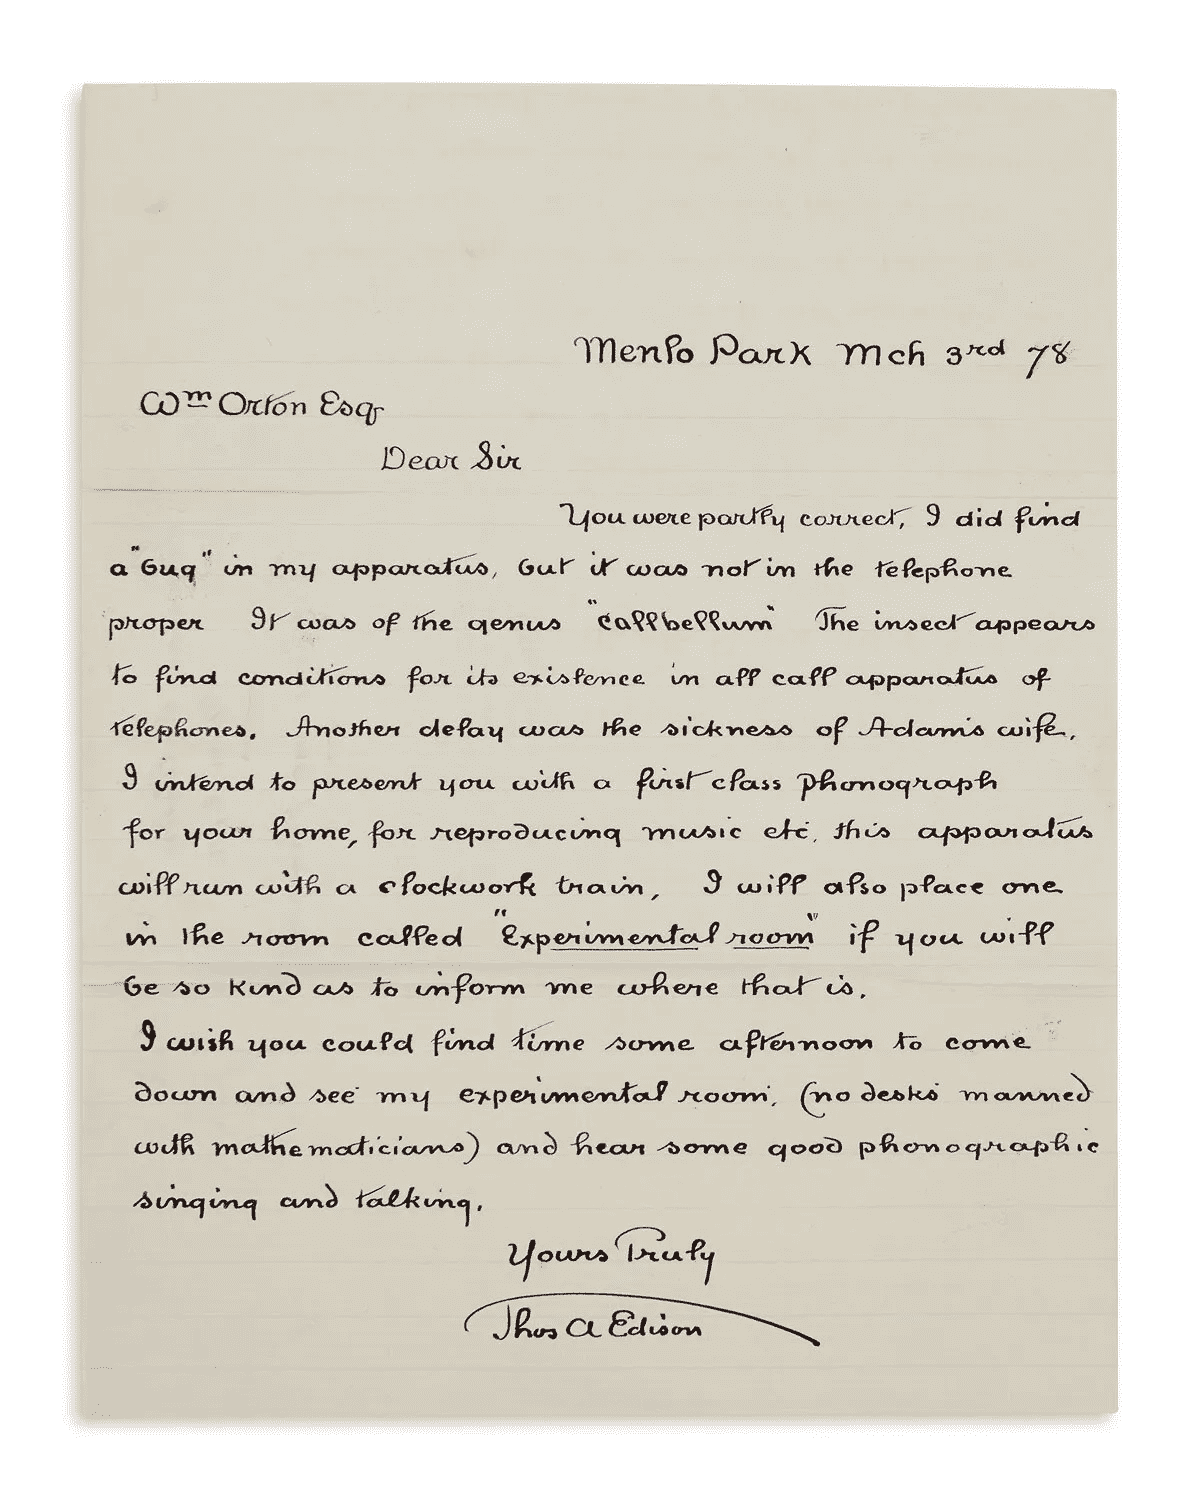 Menlo Park Mch 3rd 78
Wm Orton Esqr
Dear Sir
You were partly correct, I did find
a "bug" in my apparatus, but it was not in the telephone
proper It was of the genus "callbellum" The insect appears
to find conditions for its existence in all call apparatus of
telephones. Another delay was the sickness of Adams wife,
I intend to present you with a first class phonograph
for your home, for reproducing music etc. this apparatus
will run with a clockwork train, I will also place one
in the room called "Experimental room" if you will
be so kind as to inform me where that is.
I wish you could find time some afternoon to come
down and see my experimental room, (no desks manned
with mathematicians) and hear some good phonographic
singing and talking.
Yours Truly
Thos A Edison